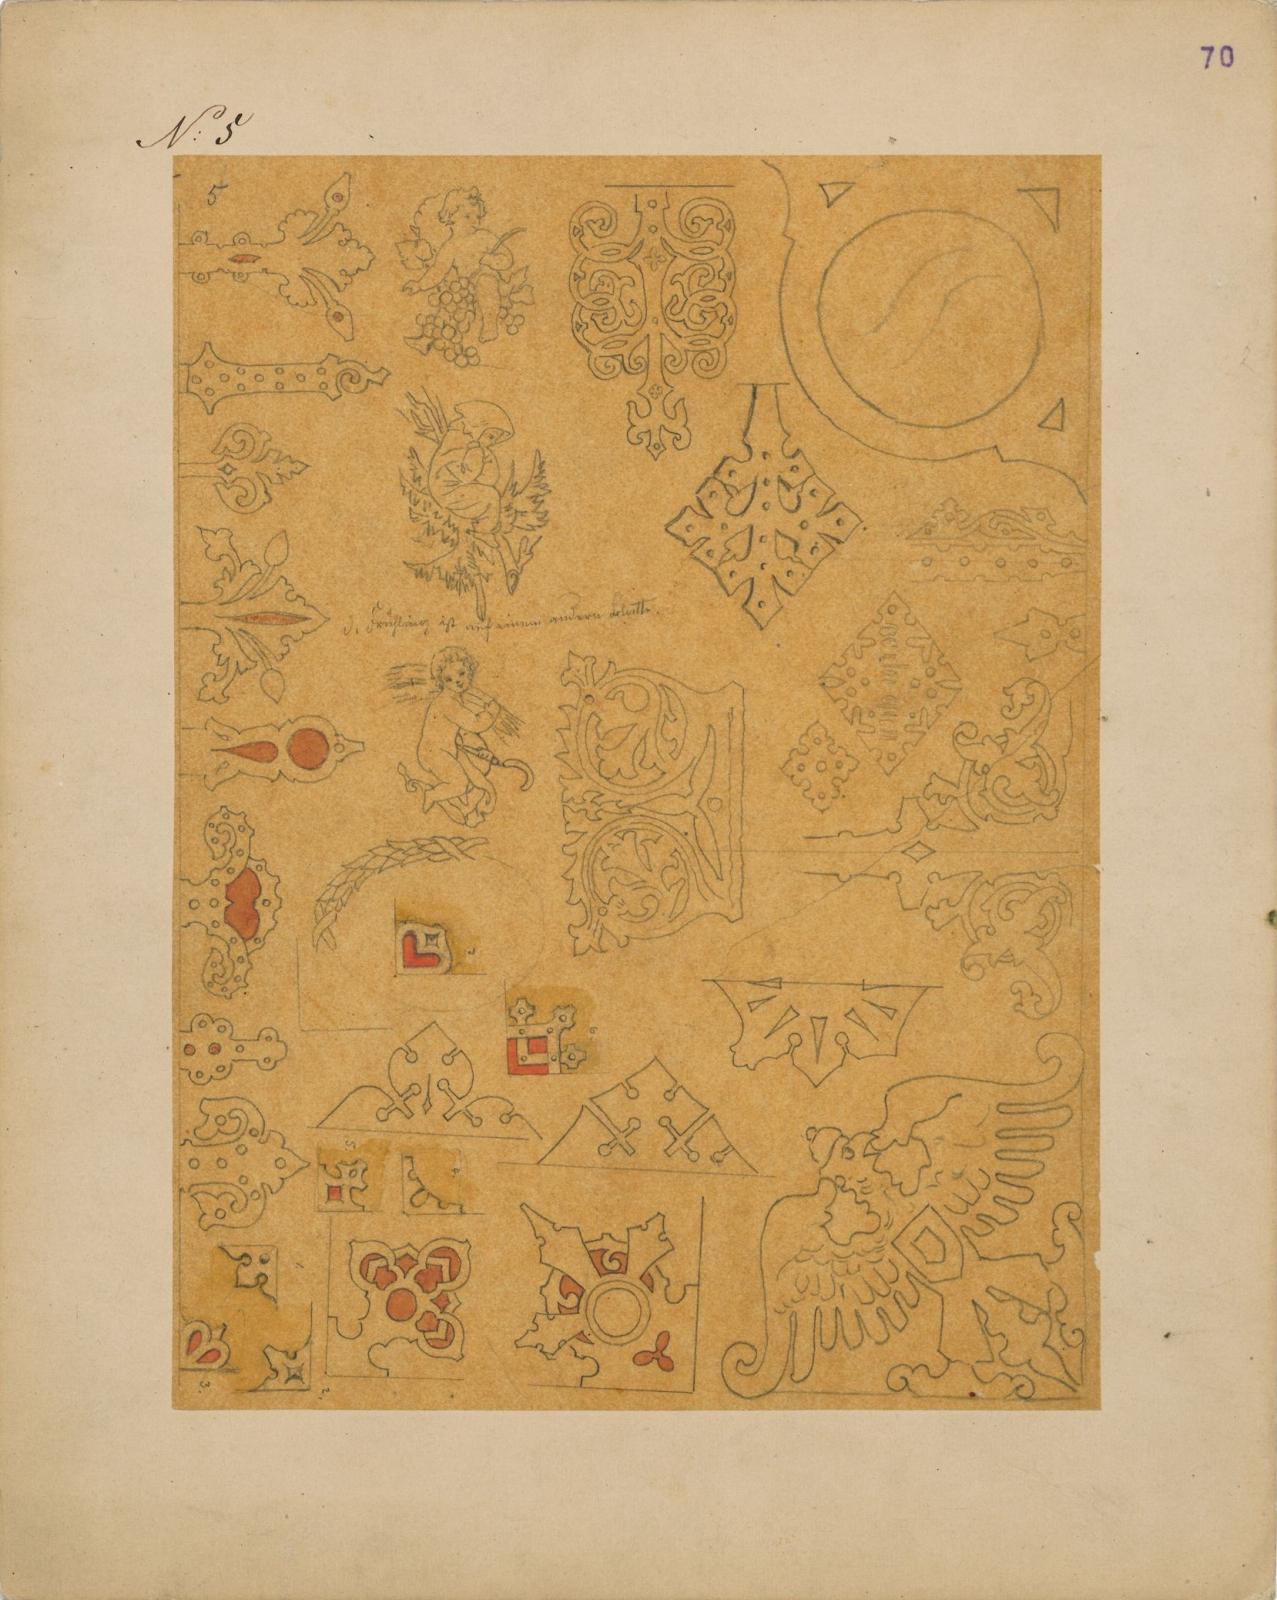 70
No: 5
5
d. Frühling ist auf einem andern Blatt.
5.
3.
2.